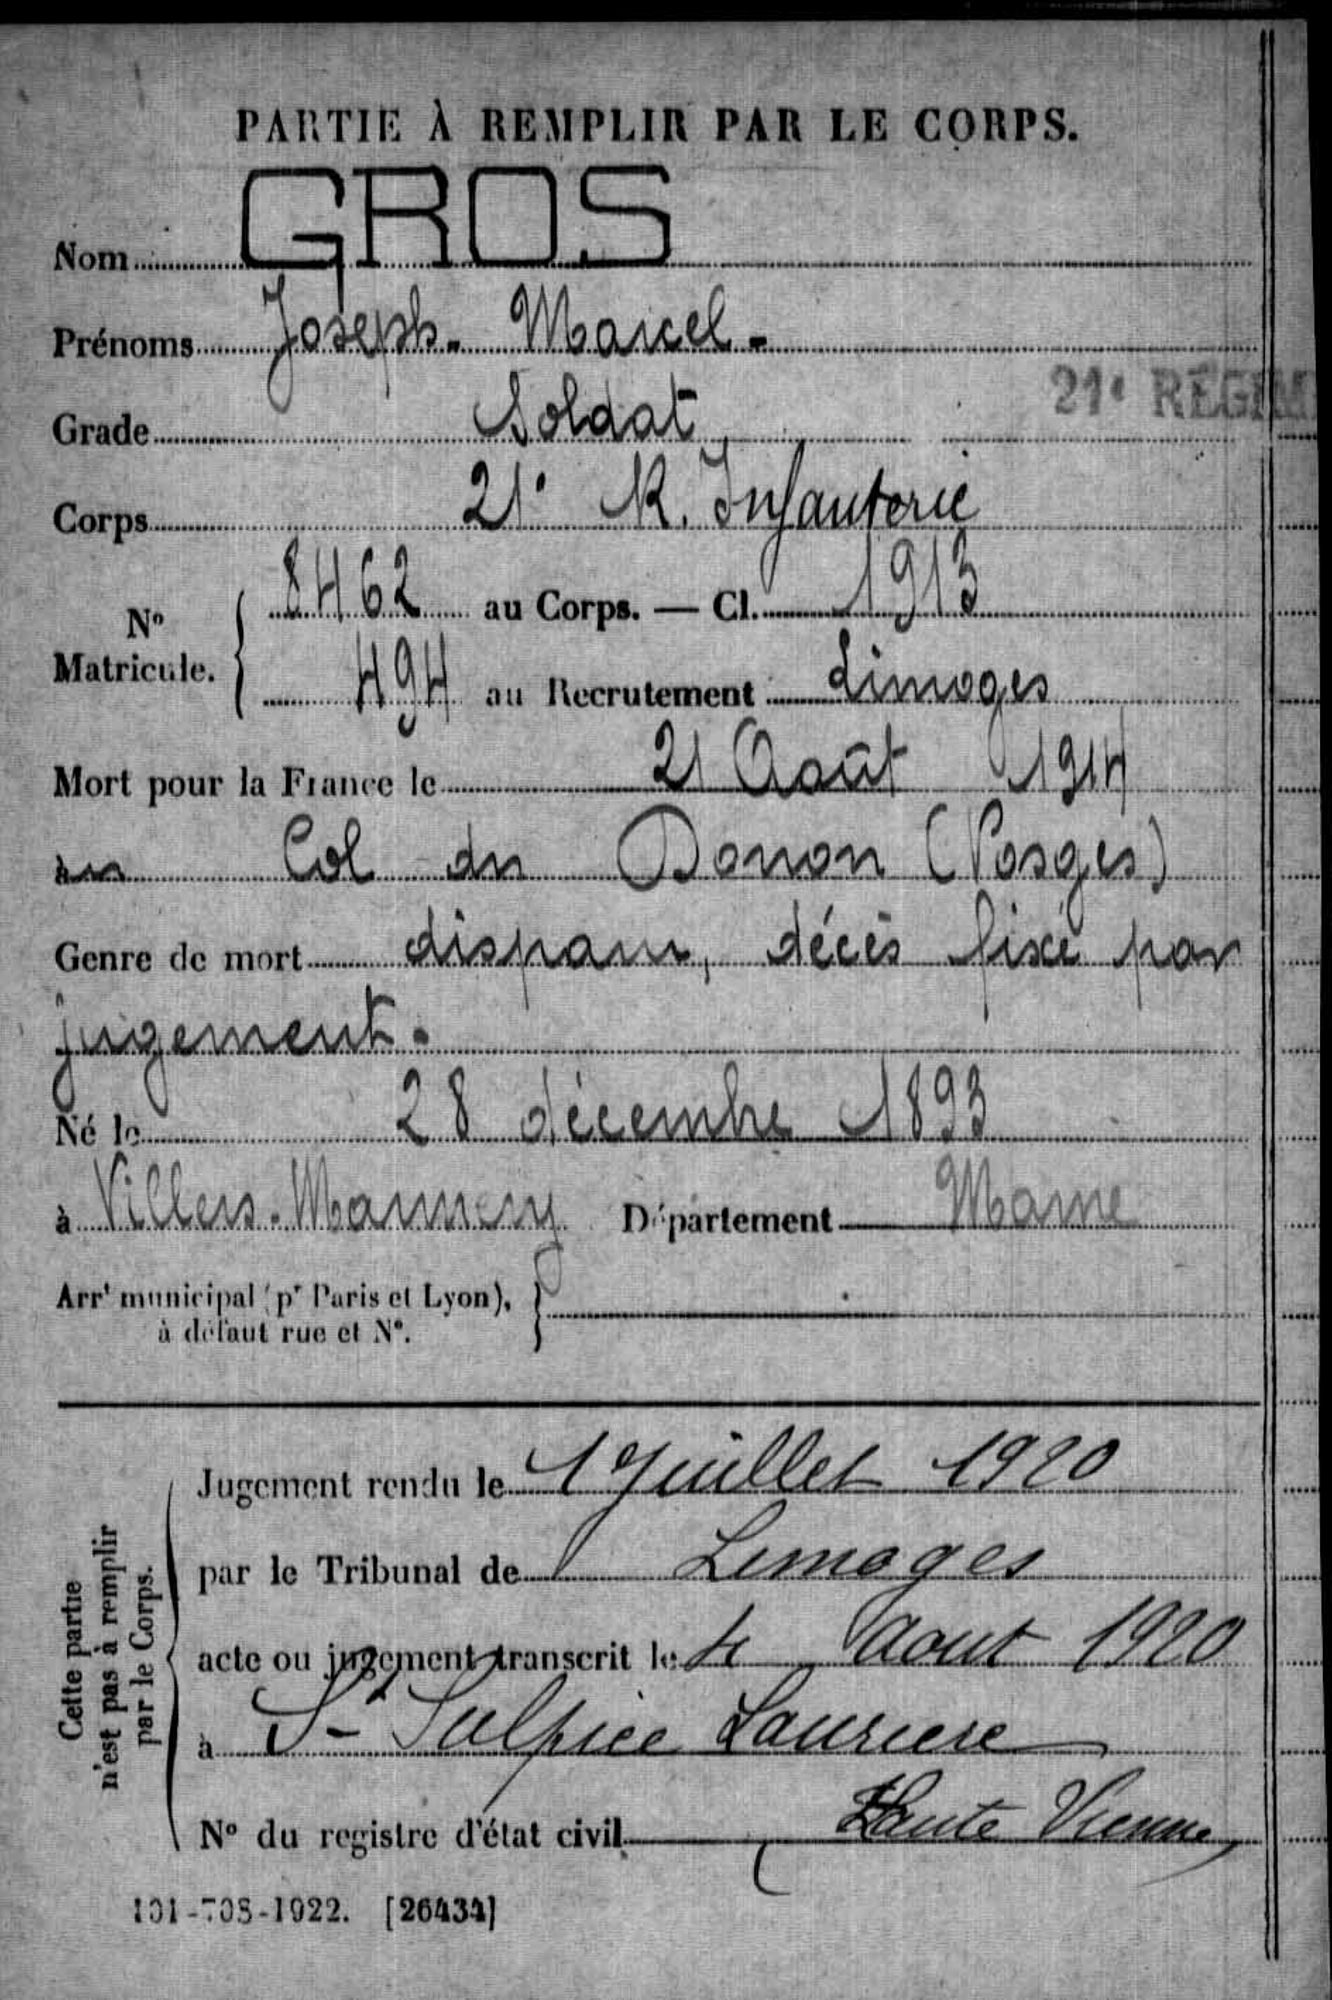 PARTIE À REMPLIR PAR LE CORPS.
Nom GROS
Prénoms Joseph - Marcel -
21e RÉGIM
Grade Soldat
Corps 21e R. Infanterie
No Matricule. { 8462 au Corps. — Cl. 1913
494 au Recrutement Limoges
Mort pour la France le 21 Août 1914
au Col du Donon (Vosges)
Genre de mort disparu, décès fixé par
jugement.
Né le 28 décembre 1893
à Villers-Marmery Département Marne
Arrt municipal (pr Paris et Lyon), }
à défaut rue et No.
Cette partie
n'est pas à remplir
par le Corps.
Jugement rendu le 1 Juillet 1920
par le Tribunal de Limoges
acte ou jugement transcrit le 4 Aout 1920
à St Sulpice Lauriere
No du registre d'état civil (Haute Vienne)
101-708-1922. [26434]